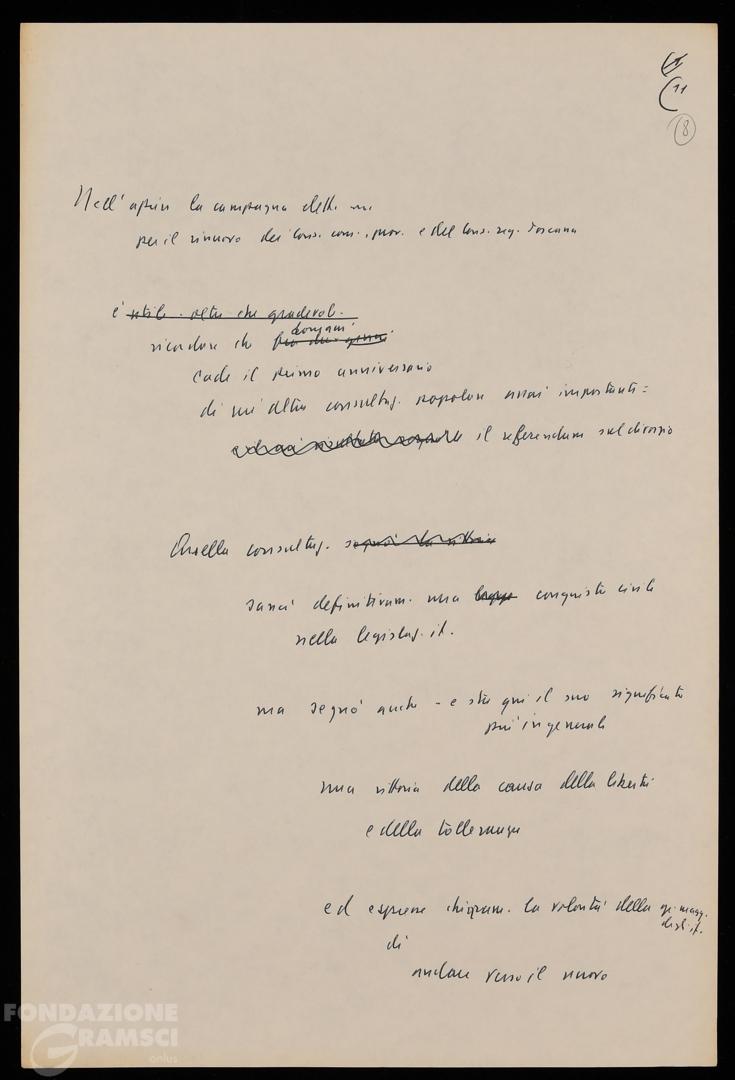 11
(11
8
Nell'aprire la campagna elett.
per il rinnovo dei Cons. com., prov. e del Cons. reg. toscana
è utile oltre che gradevol.
domani
ricordare che
cade il primo anniversario
di un'altra consultaz. popolare assai importante:
il referendum sul divorzio
Quella consultaz. segnò la vittoria
sancì definitivam. una legge conquista civile
nella legislaz. it.
ma segnò anche - e sta qui il suo significato
più in generale
una vittoria della causa della libertà
e della tolleranza
ed espresse chiaram. la volontà della gr. magg.
degli it.
di
andare verso il nuovo
FONDAZIONE
GRAMSCI
onlus